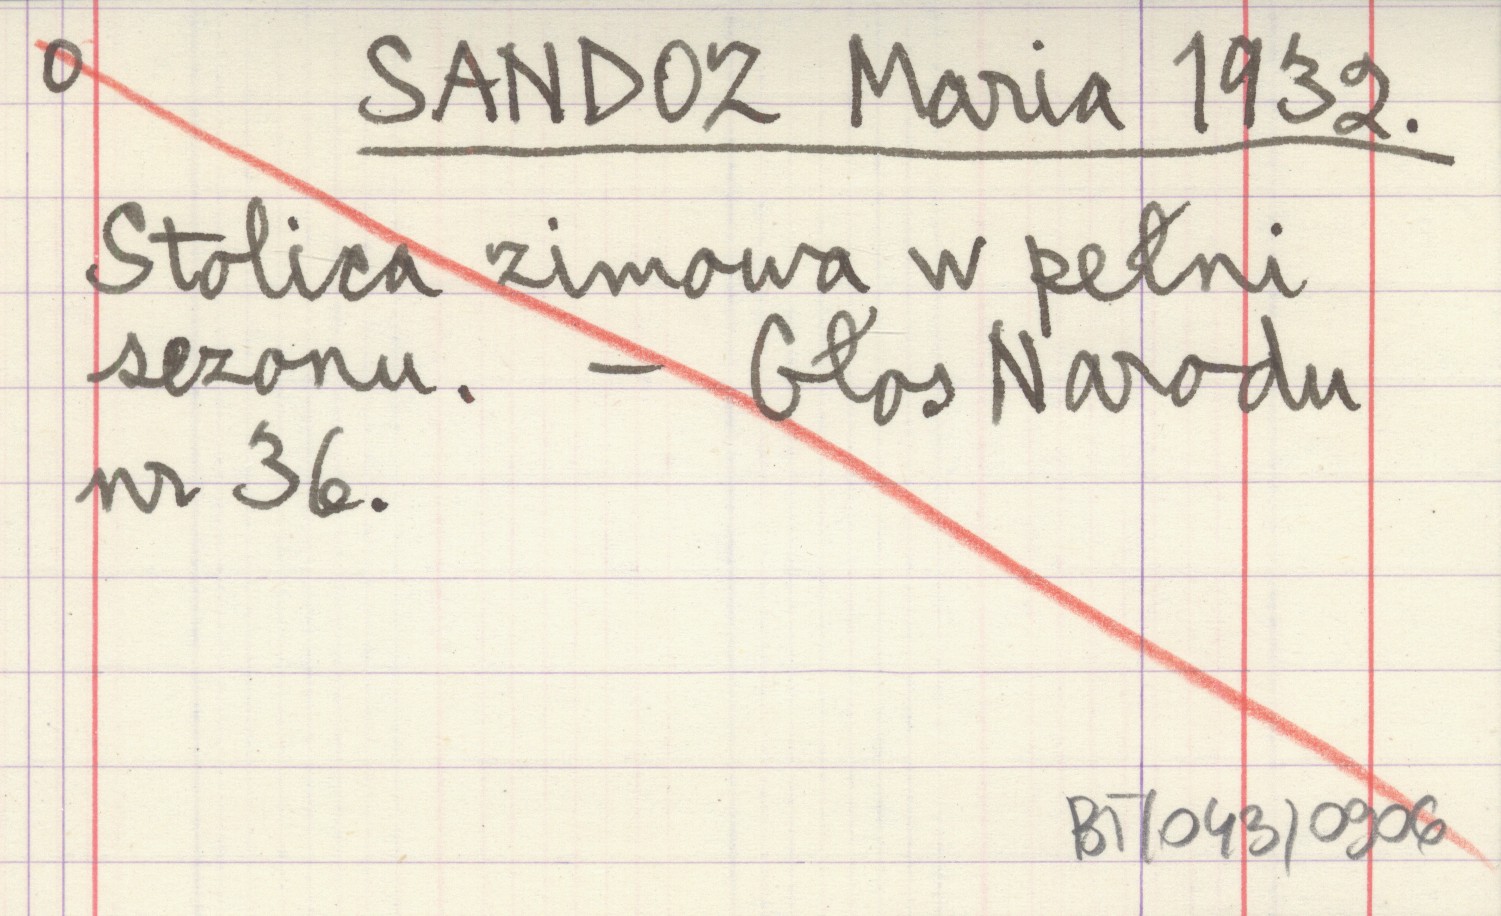 0 SANDOZ Maria 1932.
Stolica zimowa w pełni
sezonu. – Głos Narodu
nr 36.
BT(043)0906